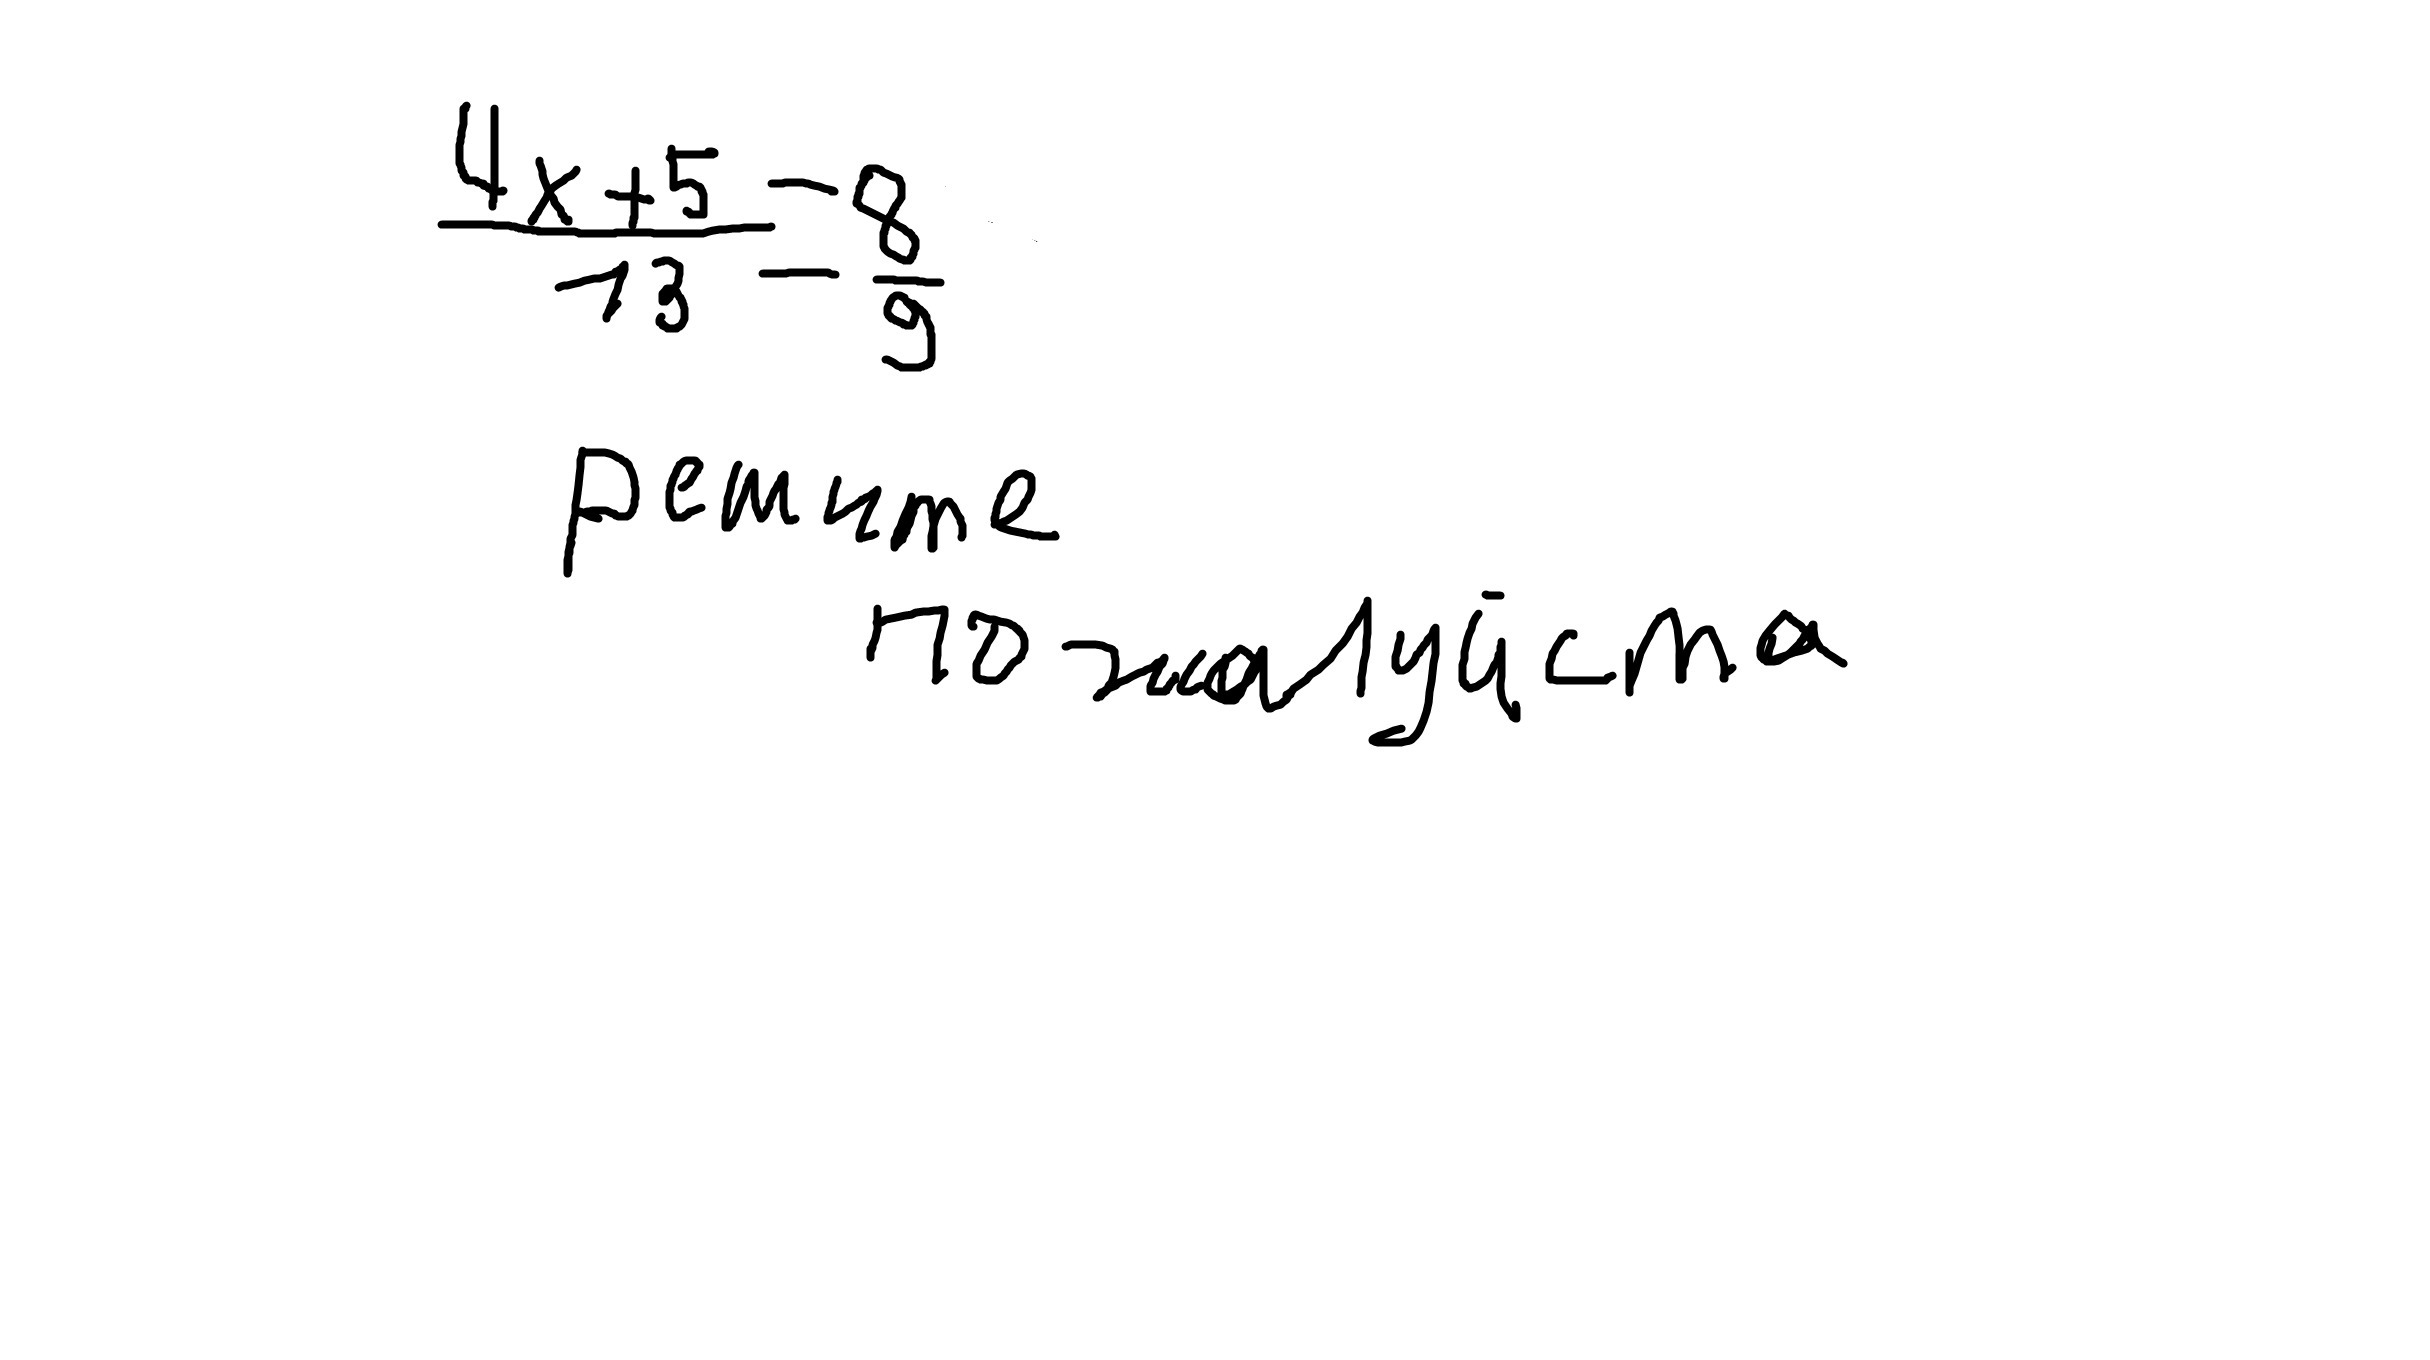 4x+5 = 8
13 9
решите
пожалуйста